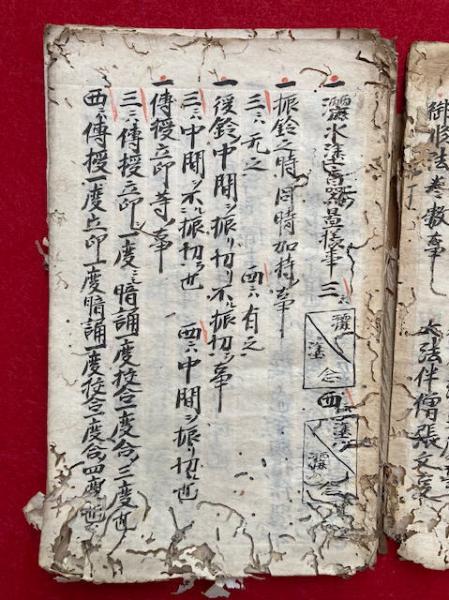 御修法巻数事
大法伴僧張文事
一灑水塗香器置様事 三ハ 灑 塗 念 西ハ 塗 灑 念
一振鈴之時同情加持事
三ハ无之 西ハ有之
一後鈴中間ヲ振リ切リ不ル振切ラ事
三ハ中間ヲ不ル振切ラ也 西ハ中間ヲ振リ切ル也
一傳授立印等事
三ハ傳授立印一度ニ暗誦一度挍合一度合三度也
西ハ傳授一度立印一度暗誦一度挍合一度合四度也